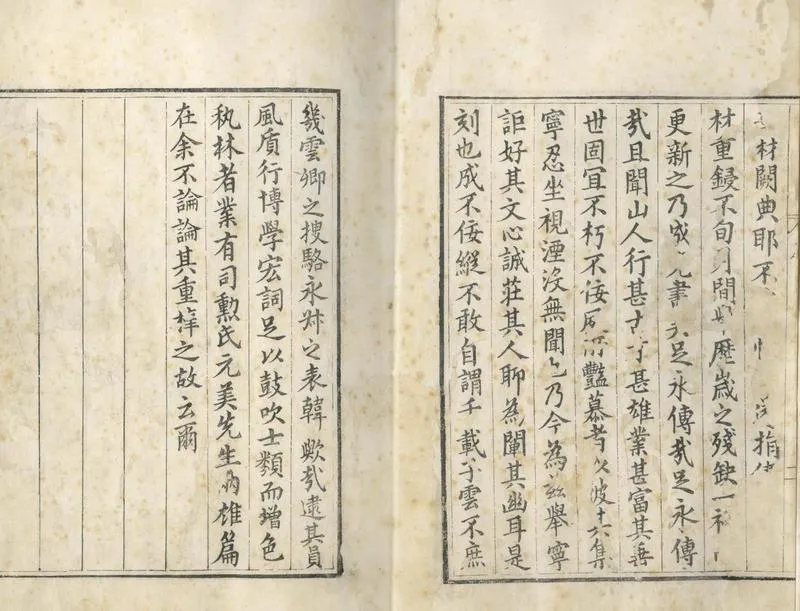 材闕典耶不捐
材重鋟不旬月間歷歲之殘缺一
更新之乃成書足永傳哉足永傳
哉且聞山人行甚甚雄業甚富其垂
世固宜不朽不佞豔慕集
寧忍坐視湮沒無聞乃今為茲舉寧
詎好其文心誠莊其人聊為闡其幽耳是
刻也成不佞縱不敢自謂千載子雲不庶
幾雲卿之搜駱永叔之表韓歟哉逮其員
風貭行博學宏詞足以鼓吹士類而增色
秇林者業有司勳氏元美先生雄篇
在余不論論其重梓之故云爾